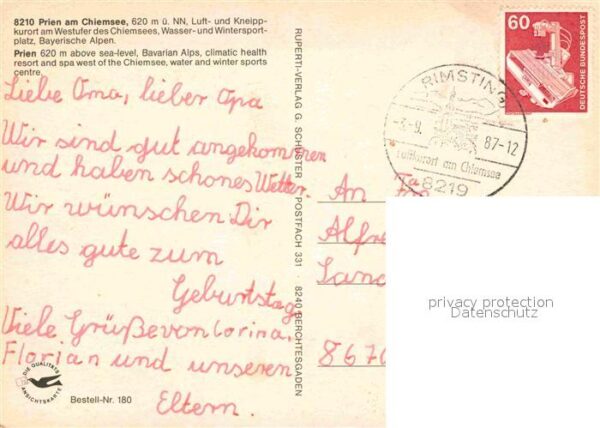 8210 Prien am Chiemsee, 620 m ü. NN, Luft- und Kneipp-
kurort am Westufer des Chiemsees, Wasser- und Wintersport-
platz, Bayerische Alpen.
Prien 620 m above sea-level, Bavarian Alps, climatic health
resort and spa west of the Chiemsee, water and winter sports
centre.
Liebe Oma, lieber Opa
Wir sind gut angekommen
und haben schönes Wetter.
Wir wünschen Dir
alles gute zum
Geburtstag
Viele Grüße von Corina,
Florian und unseren
Eltern.
DIE QUALITÄTS
ANSICHTSKARTE
Bestell-Nr. 180
RUPERTI-VERLAG G. SCHUSTER POSTFACH 331 8240 BERCHTESGADEN
60
DEUTSCHE BUNDESPOST
RIMSTING
-3.-9. 87-12
Luftkurort am Chiemsee
8219
An
Alfre
8670
privacy protection
Datenschutz